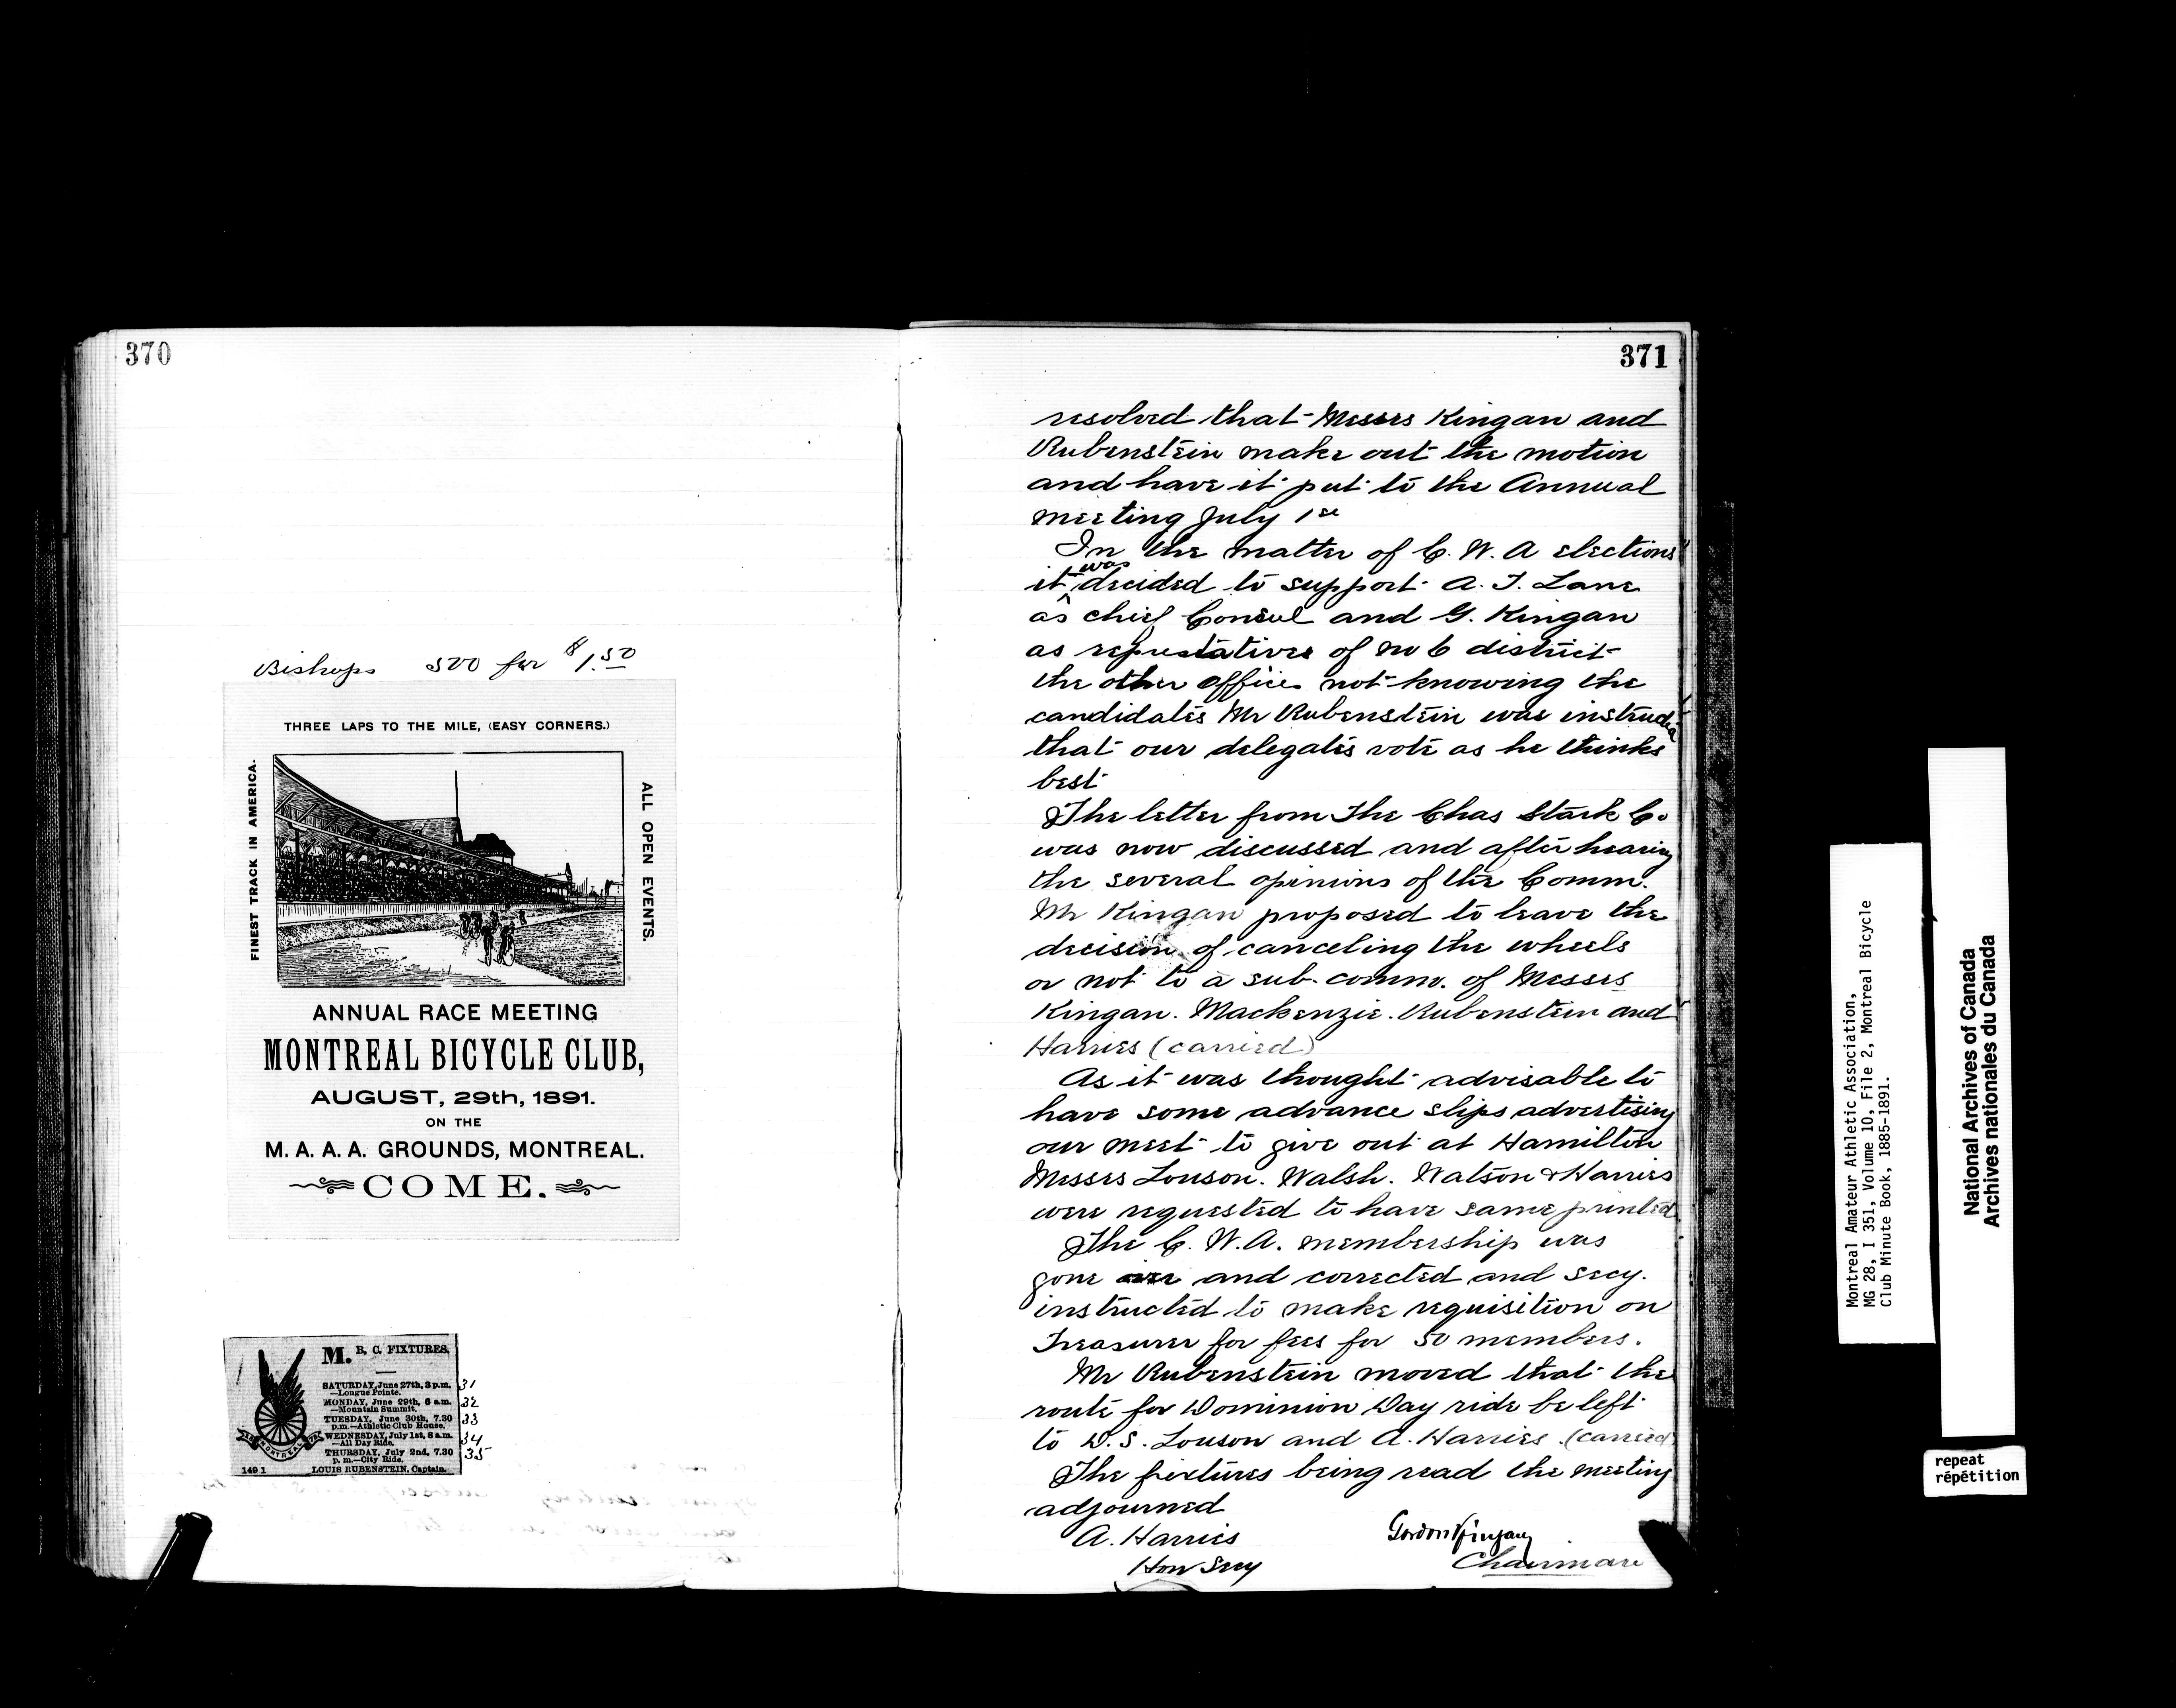 370
Bishops 500 for $1.50
THREE LAPS TO THE MILE, (EASY CORNERS.)
FINEST TRACK IN AMERICA.
ALL OPEN EVENTS.
ANNUAL RACE MEETING
MONTREAL BICYCLE CLUB,
AUGUST, 29th, 1891.
ON THE
M. A. A. A. GROUNDS, MONTREAL.
COME.
M. B. C. FIXTURES.
SATURDAY, June 27th, 3 p.m. 31
—Longue Pointe.
MONDAY, June 29th, 6 a.m. 32
—Mountain Summit.
TUESDAY, June 30th, 7.30 33
p.m.—Athletic Club House.
WEDNESDAY, July 1st, 8 a.m. 34
—All Day Ride.
THURSDAY, July 2nd, 7.30 35
p. m.—City Ride.
MONTREAL
149 1 LOUIS RUBENSTEIN, Captain.
371
resolved that Messrs Kingan and
Rubenstein make out the motion
and have it put to the Annual
meeting July 1st
In the matter of C. W. A elections
it was decided to support A. T. Lane
as chief Consul and G. Kingan
as of no 6 district
the other offices not knowing the
candidates Mr Rubenstein was instructed
that our delegates vote as he thinks
best
The letter from The Chas Stark Co
was now discussed and after hearing
the several opinions of the Comm.
Mr Kingan proposed to leave the
decision of canceling the wheels
or not to a sub-comm. of Messrs
Kingan. Mackenzie. Rubenstein and
Harries (carried)
As it was thought advisable to
have some advance slips advertising
our meet to give out at Hamilton
Messrs Louson. Walsh. Watson & Harries
were requested to have same printed
The C. W. A. membership was
gone over and corrected and secy.
instructed to make requisition on
Treasurer for fees for 50 members.
Mr Rubenstein moved that the
route for Dominion Day ride be left
to D. S. Louson and A. Harries (carried)
The fixtures being read the meeting
adjourned
A. Harries Gordon Kingan
Hon Secy Chairman
Montreal Amateur Athletic Association,
MG 28, I 351, Volume 10, File 2, Montreal Bicycle
Club Minute Book, 1885-1891.
National Archives of Canada
Archives nationales du Canada
repeat
répétition